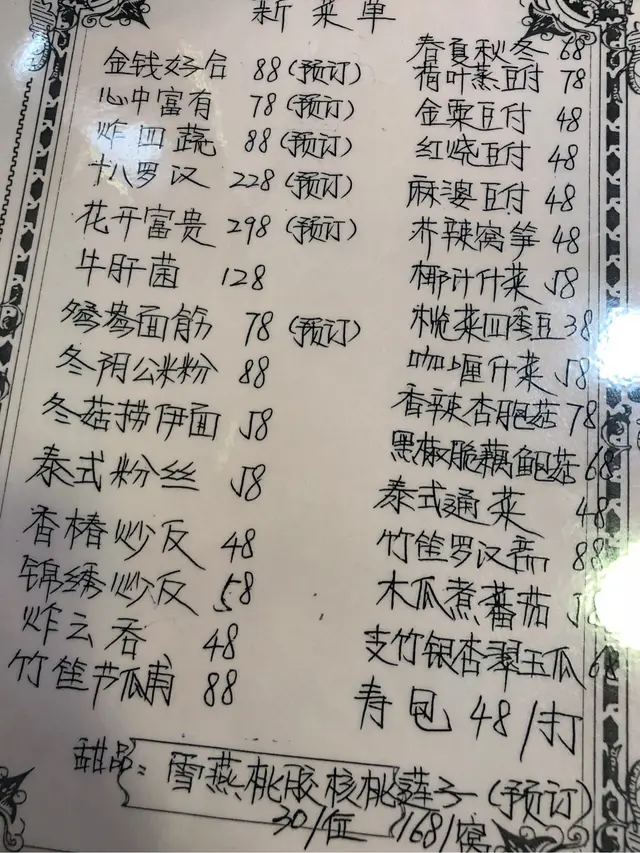 新菜单
金钱好 88(预订)
心中富有 78(预订)
炸四蔬 88(预订)
十八罗汉 228(预订)
花开富贵 298(预订)
牛肝菌 128
鸳鸯面筋 78(预订)
冬阴公米粉 88
冬菇捞伊面 58
泰式粉丝 58
香椿炒反 48
锦绣炒反 58
炸云吞 48
竹笙芦瓜甫 88
春夏秋冬 68
荷叶蒸豆付 78
金粟豆付 48
红烧豆付 48
麻婆豆付 48
芥辣窝笋 48
椰汁什菜 58
榄菜四季豆 38
咖喱什菜 58
香辣杏胞菇 78
黑椒脆藕鲍菇 68
泰式通菜 48
竹笙罗汉斋 88
木瓜煮蕃茄
支竹银杏翠玉瓜 68
寿包 48/打
甜品：雪燕桃胶核桃莲子(预订)
30/位 168/窝